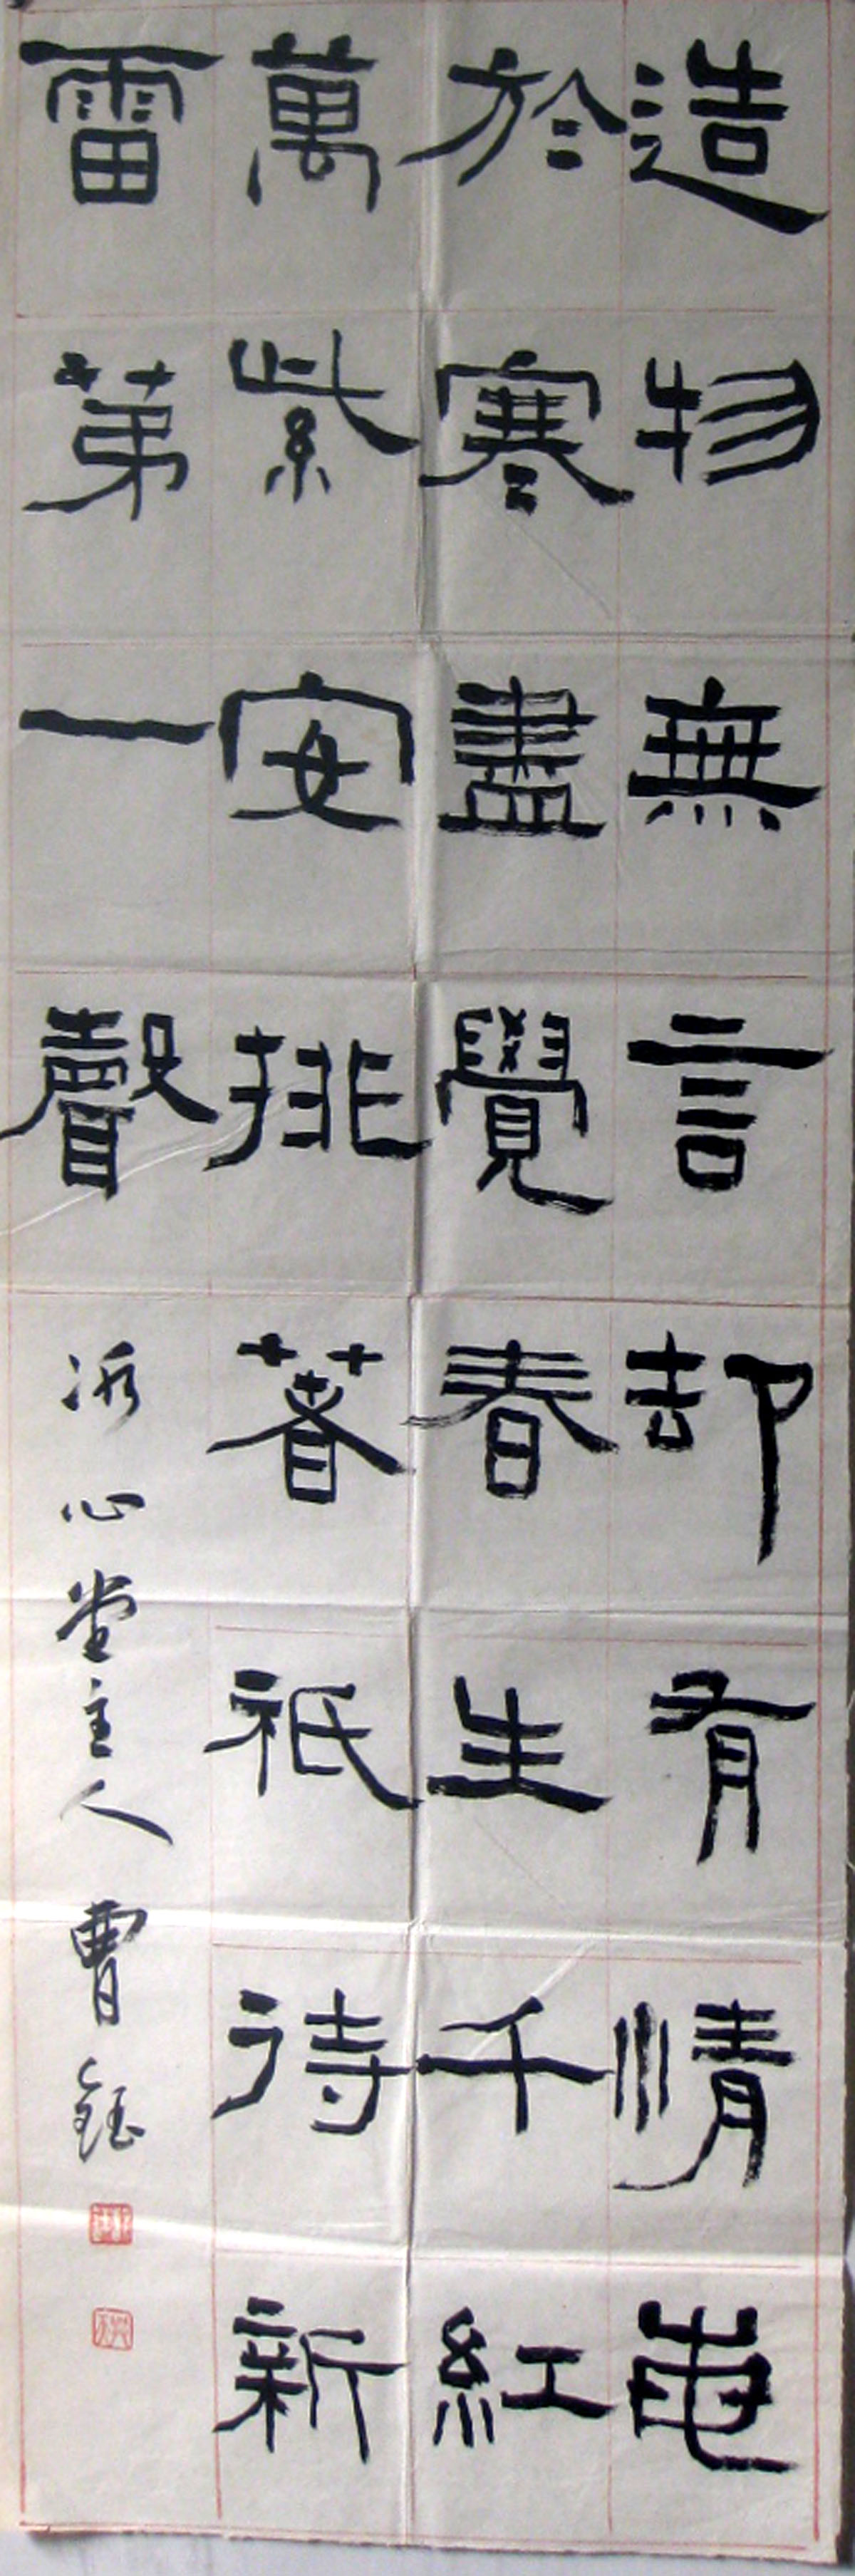 造物無言却有情每
於寒盡覺春生千紅
萬紫安排著祇待新
雷第一聲
冰心堂主人曹鈺